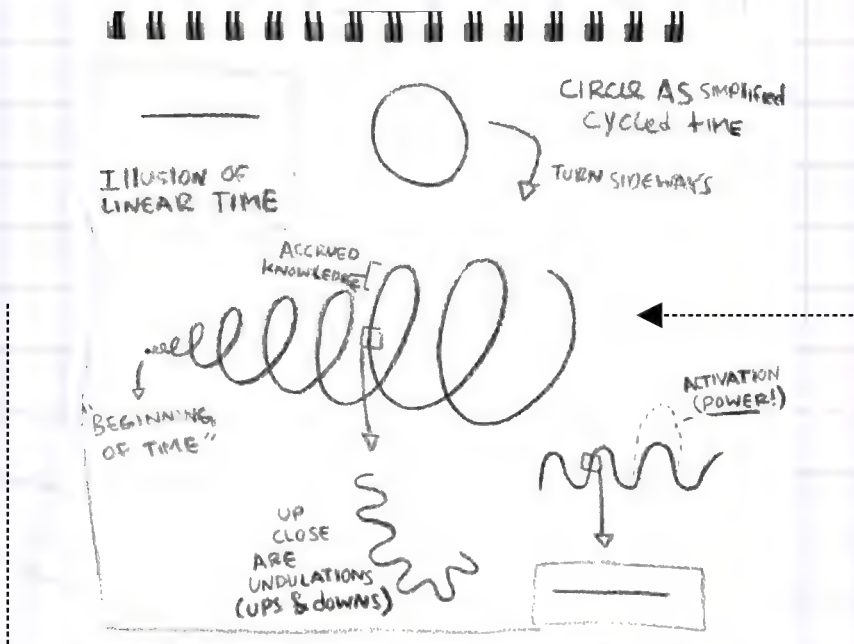 CIRCLE AS SIMPlified
CYCled tIME
TURN SIDEWAYS
IllUSION OF
LINEAR TIME
ACCRUED
KNOWLEDGE
"BEGINNING
OF TIME"
ACTIVATION
(POWER!)
UP
CLOSE
ARE
UNDULATIONS
(UPS & dOWNS)